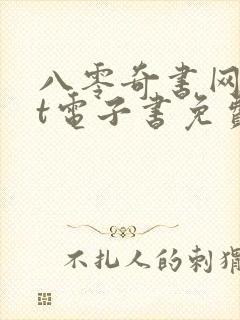 八零奇书网
t电子書免費
不扎人的刺猬